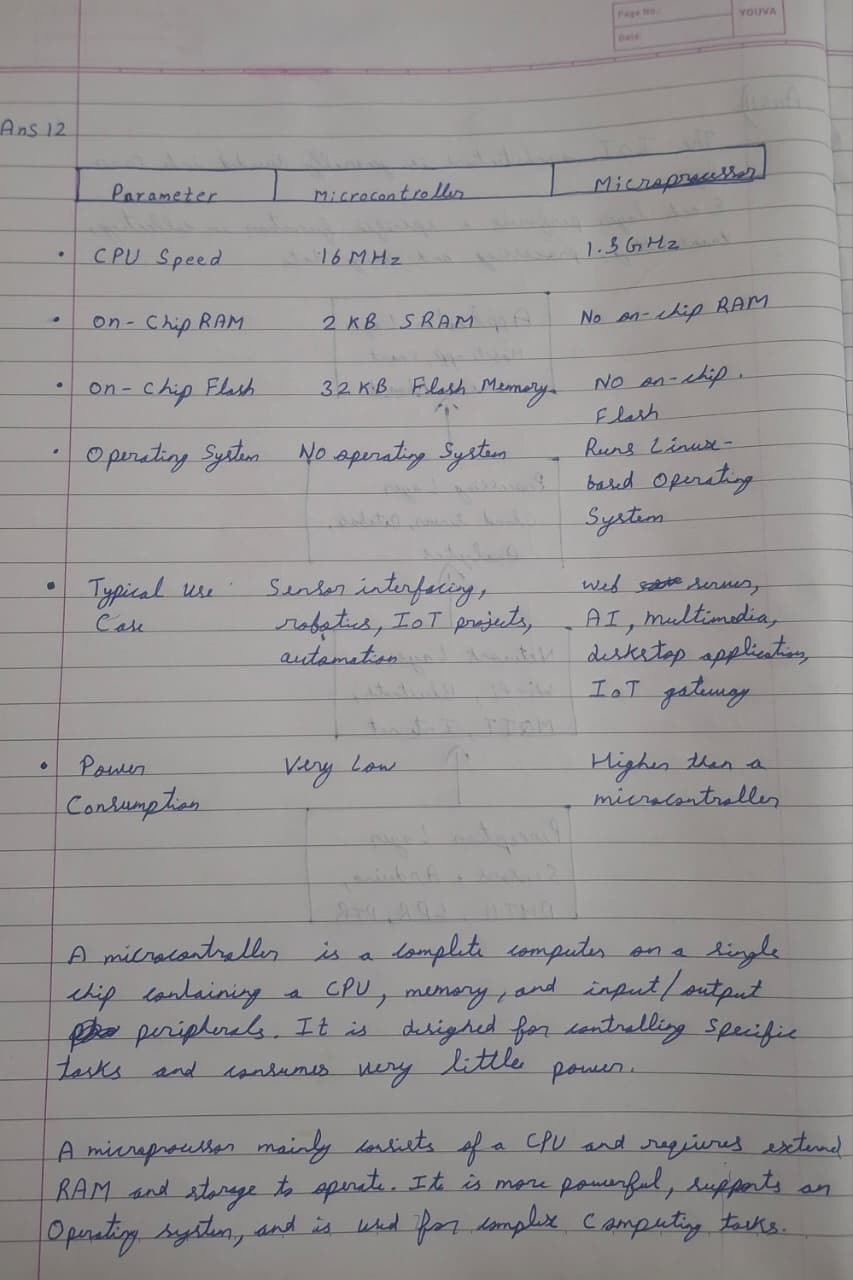 Page No.:
Date:
YOUVA
Ans 12
Parameter Microcontroller Microprocessor
• CPU Speed 16 MHz 1.5 GHz
• On-Chip RAM 2 KB SRAM No on-chip RAM
• On-chip Flash 32 KB Flash Memory NO on-chip
Flash
• Operating System No operating System Runs Linux-
based Operating
System
• Typical Use Sensor interfacing, web server,
Case robotics, IoT projects, AI, multimedia,
automation deskstop application,
IoT gateway
• Power Very Low Higher than a
Consumption microcontroller
A microcontroller is a complete computer on a single
chip containing a CPU, memory, and input/output
peripherals. It is designed for controlling specific
tasks and consumes very little power.
A microprocessor mainly consists of a CPU and requires external
RAM and storage to operate. It is more powerful, supports an
Operating system, and is used for complex Computing tasks.